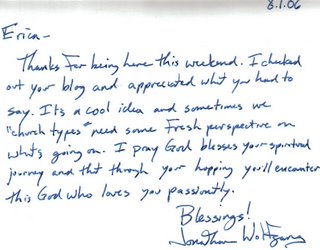 8.1.06
Erica-
Thanks for being here this weekend. I checked
out your blog and appreciated what you had to
say. It's a cool idea and sometimes we
"church types" need some fresh perspective on
what's going on. I pray God blesses your spiritual
journey and that through your hopping you'll encounter
this God who loves you passionately.
Blessings!
Jonathan Wolfgang